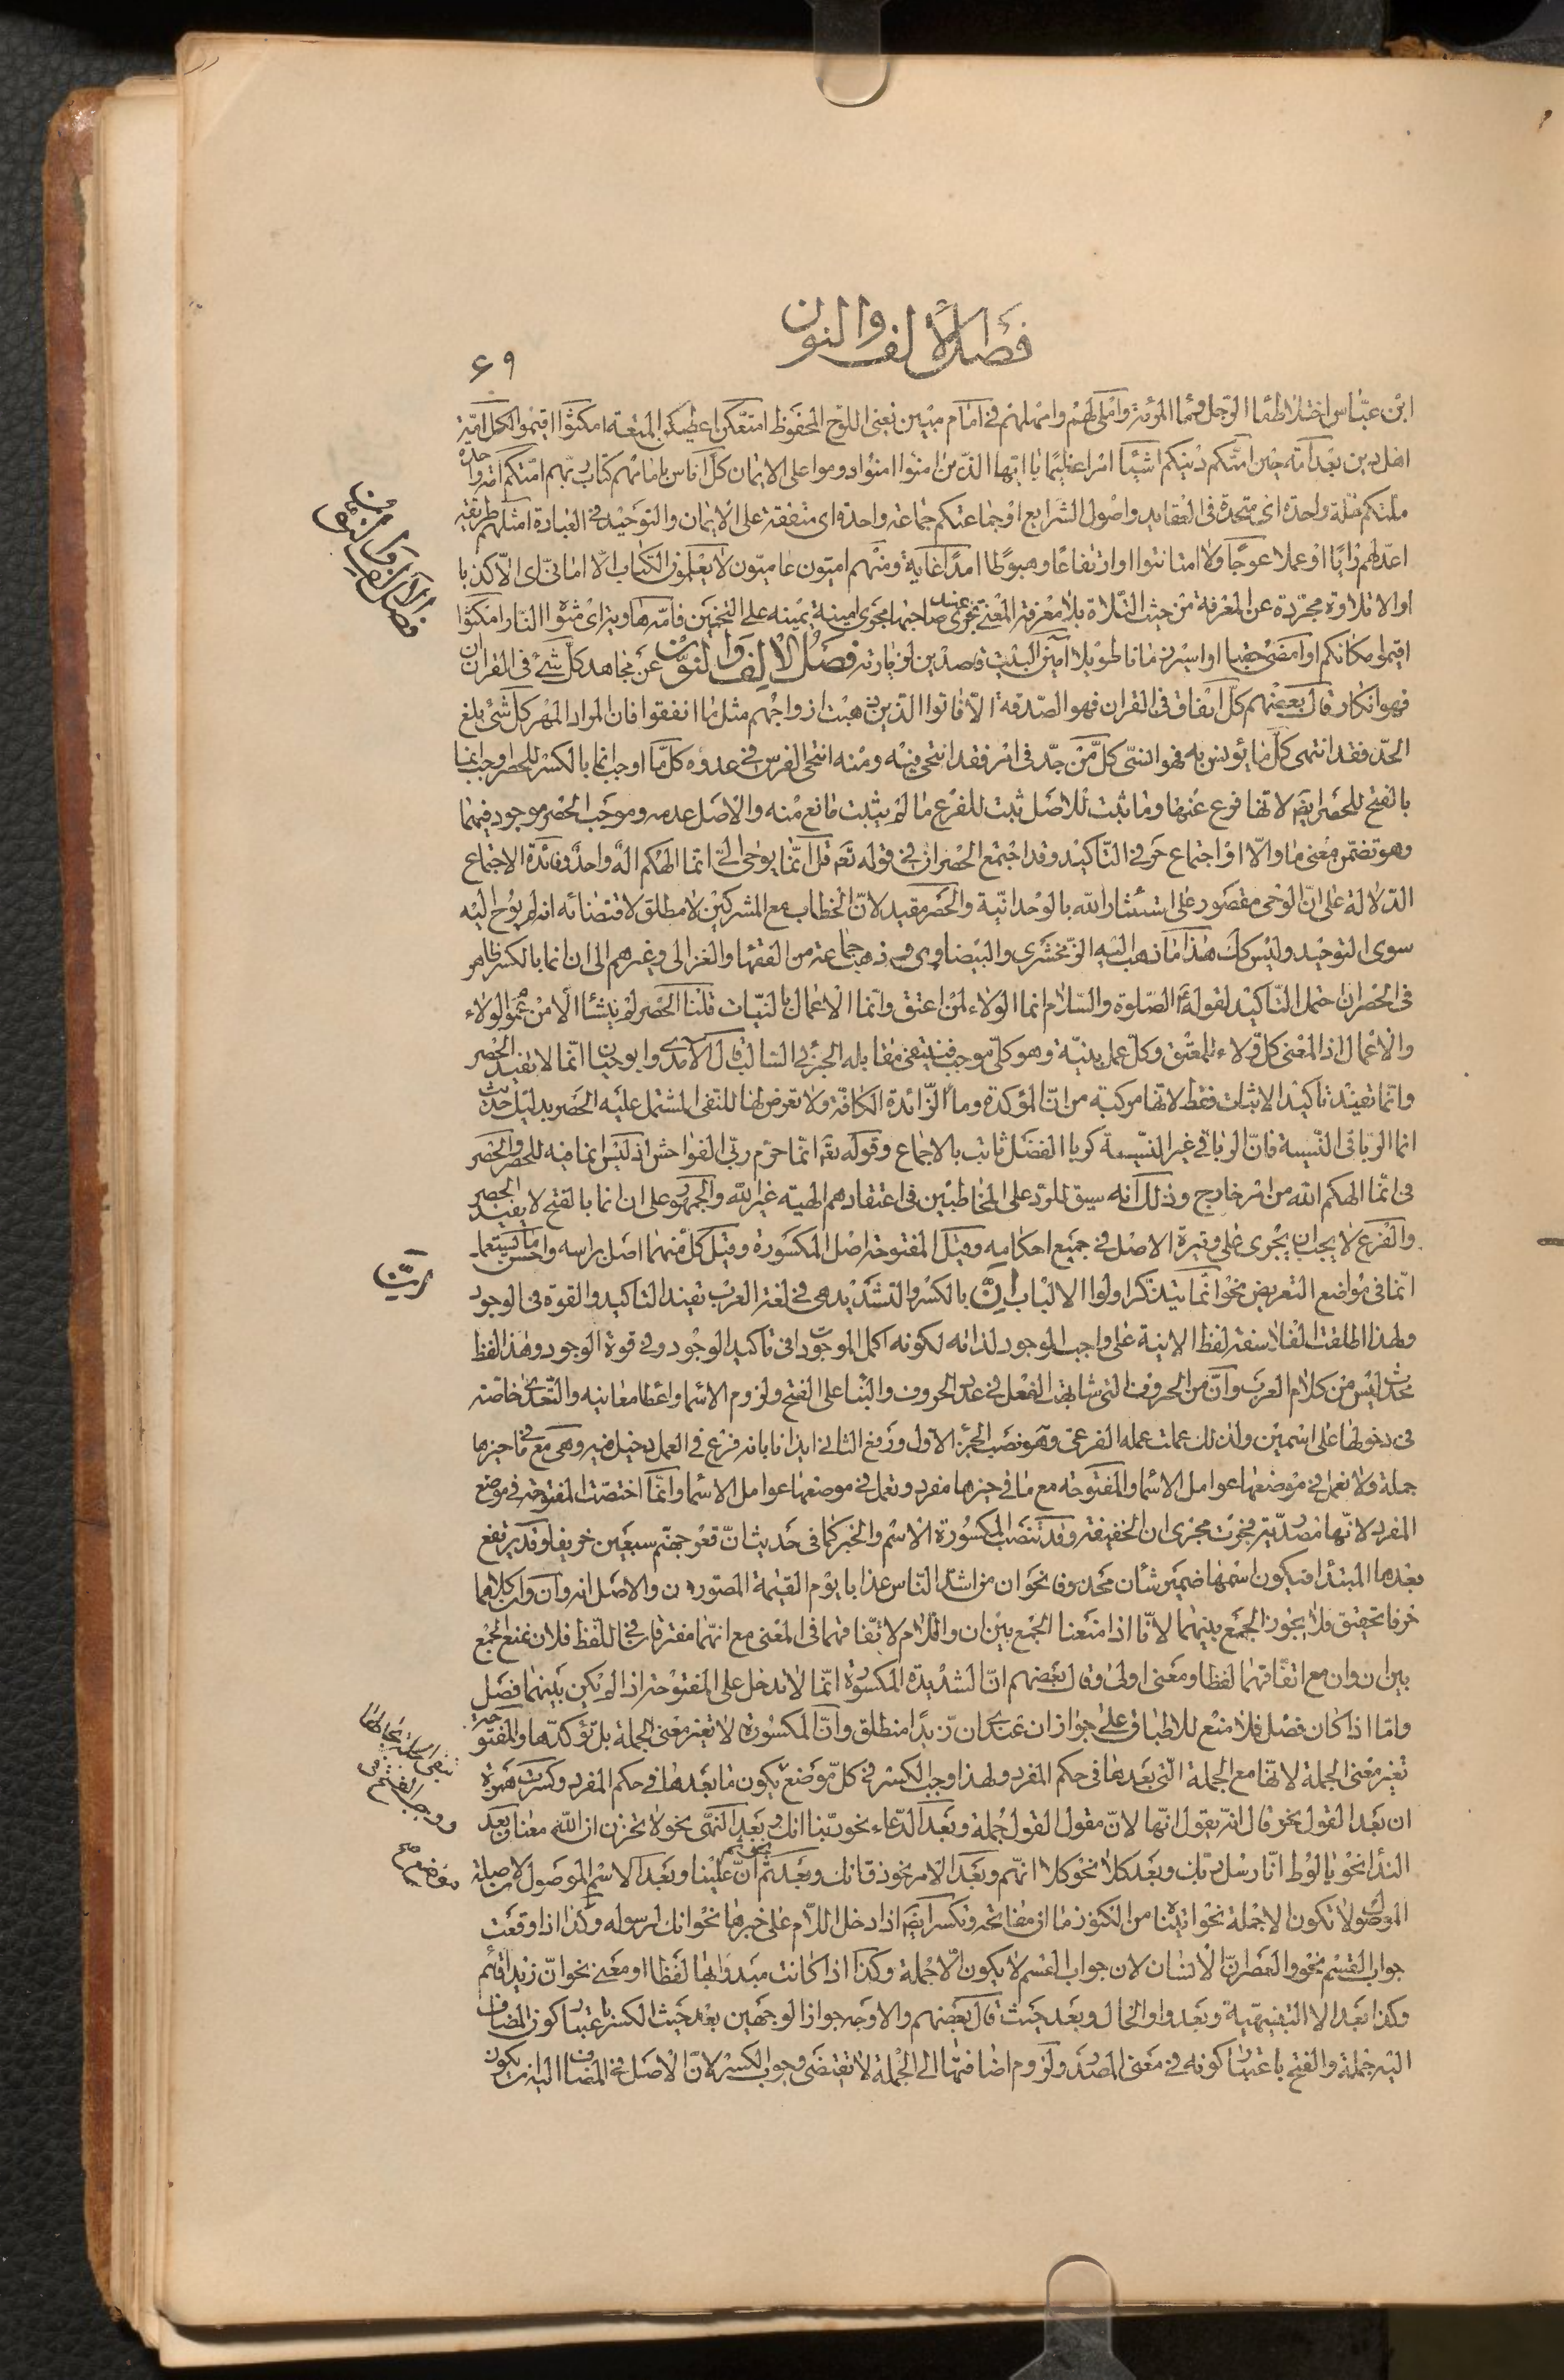 فصل الألف والنون
٦٩
ابن عبّاس اختلاط ماء الرّجل وماء المرأة وأملى لهم وامهلهم في امام مبين يعنى اللّوح المحفوظ امتّعكن اعطيكنّ المتعة امكثوا اقيموا لكل امّة
اهل دين بعد امّة حين امتكم دينكم اشيئا امرا عظيما يا ايّها الذين امنوا امنوا دوموا على الايمان كلّ اناس بامامهم كتاب ربّهم امّتكم امّة واحدة
ملّتكم ملّة واحدة اى متحدة فى العقايد واصول الشرايع او جماعتكم جماعة واحدة اى متفقة على الايمان والتوحيد فى العبادة امثلهم طريقة
اعدلهم رأيا او عملا عوجا ولا امتا نتوا او ارتفاعا وهبوطا امدا غاية ومنهم اميّون عاميّون لا يعلمون الكتاب الّا امانىّ اى الّا كذبا
او الا تلاوة مجرّدة عن المعرفة من حيث التّلاوة بلا معرفة المعنى تجرى عند صاحبها مجرى امنية تمنيه على التخمين فامّه هاوية اى مثواه النّار امكثوا
اقيموا مكانكم او امضى حقبا او اسير زمانا طويلا آمّين البيت قاصدين لزيارته فصل الالف والنّون عن مجاهد كلّ شئ فى القران ان
فهو انكار قال بعضهم كلّ انفاق فى القران فهو الصّدقة الّا فاتوا الذين ذهبت ازواجهم مثل ما انفقوا فان المراد المهر كلّ شئ بلغ
الحدّ فقد انتهى كلّ ما يؤنس به فهو انسىّ كلّ من جدّ فى امر فقد انتحى فيه ومنه انتحى الفرس فى عدوه كلّ ما اوجب انما بالكسر للحصر اوجب انما
بالفتح للحصر ايضا لانها فرع عنها وما ثبت للاصل ثبت للفرع ما لم يثبت مانع منه والاصل عدمه وموجب الحصر موجود فيهما
وهو تضمن معنى ما والّا او اجتماع حرفى التّاكيد وقد اجتمع الحصران فى قوله تعه قل انّما يوحى الىّ انّما الهكم اله واحد وفائدة الاجتماع
الدّلالة على انّ الوحى مقصور على استئثار الله بالوحدانيّة والحصر مقيد لانّ الخطاب مع المشركين لا مطلق لاقتضائه انه لم يوح اليه
سوى التوحيد وليس كك هذا ما ذهب اليه الزّمخشرى والبيضاوى وذهب جماعة من الفقها والغزالى وغيرهم الى ان انما بالكسر ظاهر
فى الحصر ان احتمل التّاكيد لقوله الصّلوة والسّلام انما الولاء لمن اعتق وانّما الاعمال بالنيّات قلنا الحصر لم ينشأ الا من عموم الولاء
والاعمال اذ المعنى كل ولاء للمعتق وكلّ عمل بنيّة وهو كلّى موجب فينتفى مقابله الجزئى السّالب قال الآمدى وابو حيان انّما لا تفيد الحصر
وانّما تفيد تأكيد الاثبات فقط لانها مركبة من انّ المؤكدة وما الزّائدة الكافّة ولا تعرض لها للنفى المشتمل عليه الحصر بدليل حديث
انما الربا فى النّسيئة فانّ الربا فى غير النّسيئة كربا الفضل ثابت بالاجماع وقوله تعه انّما حرّم ربّى الفواحش اذ ليس انما فيه للحصر والحصر
فى انّما الهكم الله من امر خارج وذلك انه سيق للردّ على المخاطبين فى اعتقادهم الهيّة غير الله والجمهور على ان انما بالفتح لا يفيد الحصر
والفرع لا يجب ان يجرى على وتيرة الاصل فى جميع احكامه وقيل المفتوحة اصل المكسورة وقيل كل منهما اصل براسه واحسن ما يستعمل
انّما فى مواضع التعريض نحو انّما يتذكر اولوا الالباب انّ بالكسر والتشديد هى فى لغة العرب تفيد التاكيد والقوة فى الوجود
ولهذا اطلقت الفلاسفة لفظ الانية على واجب الوجود لذاته لكونه اكمل الموجودات فى تأكيد الوجود وفى قوة الوجود وهذا لفظ
محدث ليس من كلام العرب وانّ من الحروف التى شابهت الفعل فى عدد الحروف والبنا على الفتح ولزوم الاسما واعطا معانيه والمتعدّى خاصّة
فى دخولها على اسمين ولذلك عملت عمله الفرعى وهو نصب الجزء الاول ورفع الثانى ايذانا بانه فرع فى العمل دخيل فيه وهى مع ما فى حيزها
جملة ولا تعمل فى موضعها عوامل الاسما والمفتوحة مع ما فى حيزها مفرد وتعمل فى موضعها عوامل الاسما وانّما اختصّت المفتوحة فى موضع
المفرد لانّها مصدرية فجرت مجرى ان الخفيفة وقد تنصب المكسورة الاسم والخبر كما فى حديث انّ قعر جهنّم سبعين خريفا وقد يرتفع
بعدها المبتدأ فيكون اسمها ضمير شأن محذوفا نحو ان من اشدّ النّاس عذابا يوم القيمة المصّورون والاصل انه وان وان كلاهما
حرفا تحقيق فلا يجوز الجمع بينهما لانّا اذا منعنا الجمع بين ان واللّام لاتّفاقهما فى المعنى مع انّهما مفترقان فى اللّفظ فلان نمنع الجمع
بين ان وان مع اتفاقهما لفظا ومعنى اولى وقال بعضهم انّ الشديدة المكسورة انّما لا تدخل على المفتوحة اذا لم يكن بينهما فصل
وامّا اذا كان فصل فلا منع للاطباق على جواز ان عندى ان زيدا منطلق وانّ المكسورة لا تغير معنى الجملة بل تؤكدها والمفتوحة
تغير معنى الجملة لانّها مع الجملة الّتى بعدها فى حكم المفرد ولهذا وجب الكسر فى كلّ موضع يكون ما بعدها فى حكم المفرد وكسرت همزة
ان بعد القول نحو قال انّه يقول انّها لانّ مقول القول جملة وبعد الدّعاء نحو ربّنا انك وبعد النّهى نحو لا تحزن ان الله معنا وبعد
النّدا نحو يا لوط انّا رسل ربّك وبعد كلا نحو كلا انّهم وبعد الامر نحو ذق انك وبعد ثمّ نحو ثم انّ علينا وبعد الاسم الموصول لان صلة
الموصول لا تكون الا جملة نحو اتيناه من الكنوز ما ان مفاتحه وتكسر ايضا اذا دخل اللّام على خبرها نحو انك لرسوله وكذا اذا وقعت
جواب القسم نحو والعصر انّ الانسان لان جواب القسم لا يكون الّا جملة وكذا اذا كانت مبدوابها لفظا او معنى نحو انّ زيدا قائم
وكذا بعد الا التّنبيهية وبعد واو الحال وبعد حيث قال بعضهم والاوجه جواز الوجهين بعد حيث الكسر باعتبار كون المضاف
اليه جملة والفتح باعتبار كونه فى معنى المصدر ولزوم اضافتها الى الجملة لا تقتضى وجوب الكسر لانّ الاصل فى المضاف اليه ان يكون
فصل الالف والنون
انّ